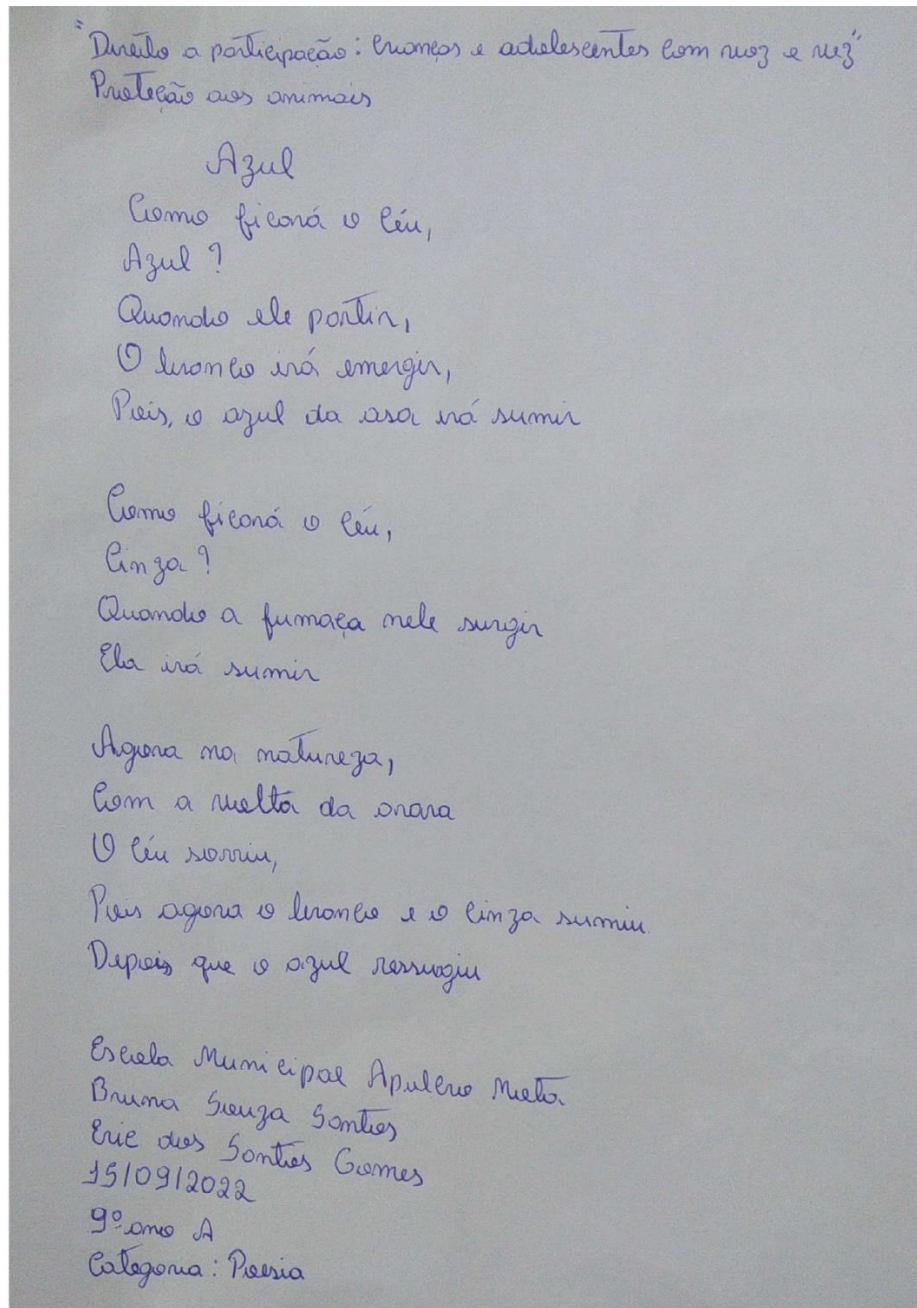 "Direito a participação: Crianças e adolescentes com voz e vez"
Proteção aos animais
Azul
Como ficará o céu,
Azul?
Quando ele partir,
O branco irá emergir,
Pois, o azul da asa irá sumir
Como ficará o céu,
Cinza?
Quando a fumaça nele surgir
Ela irá sumir
Agora na natureza,
Com a volta da arara
O céu sorriu,
Pois agora o branco e o cinza sumiu.
Depois que o azul ressugiu
Escola Municipal Apulcro Mota
Bruna Souza Santos
Eric dos Santos Gomes
15/09/2022
9º ano A
Categoria: Poesia